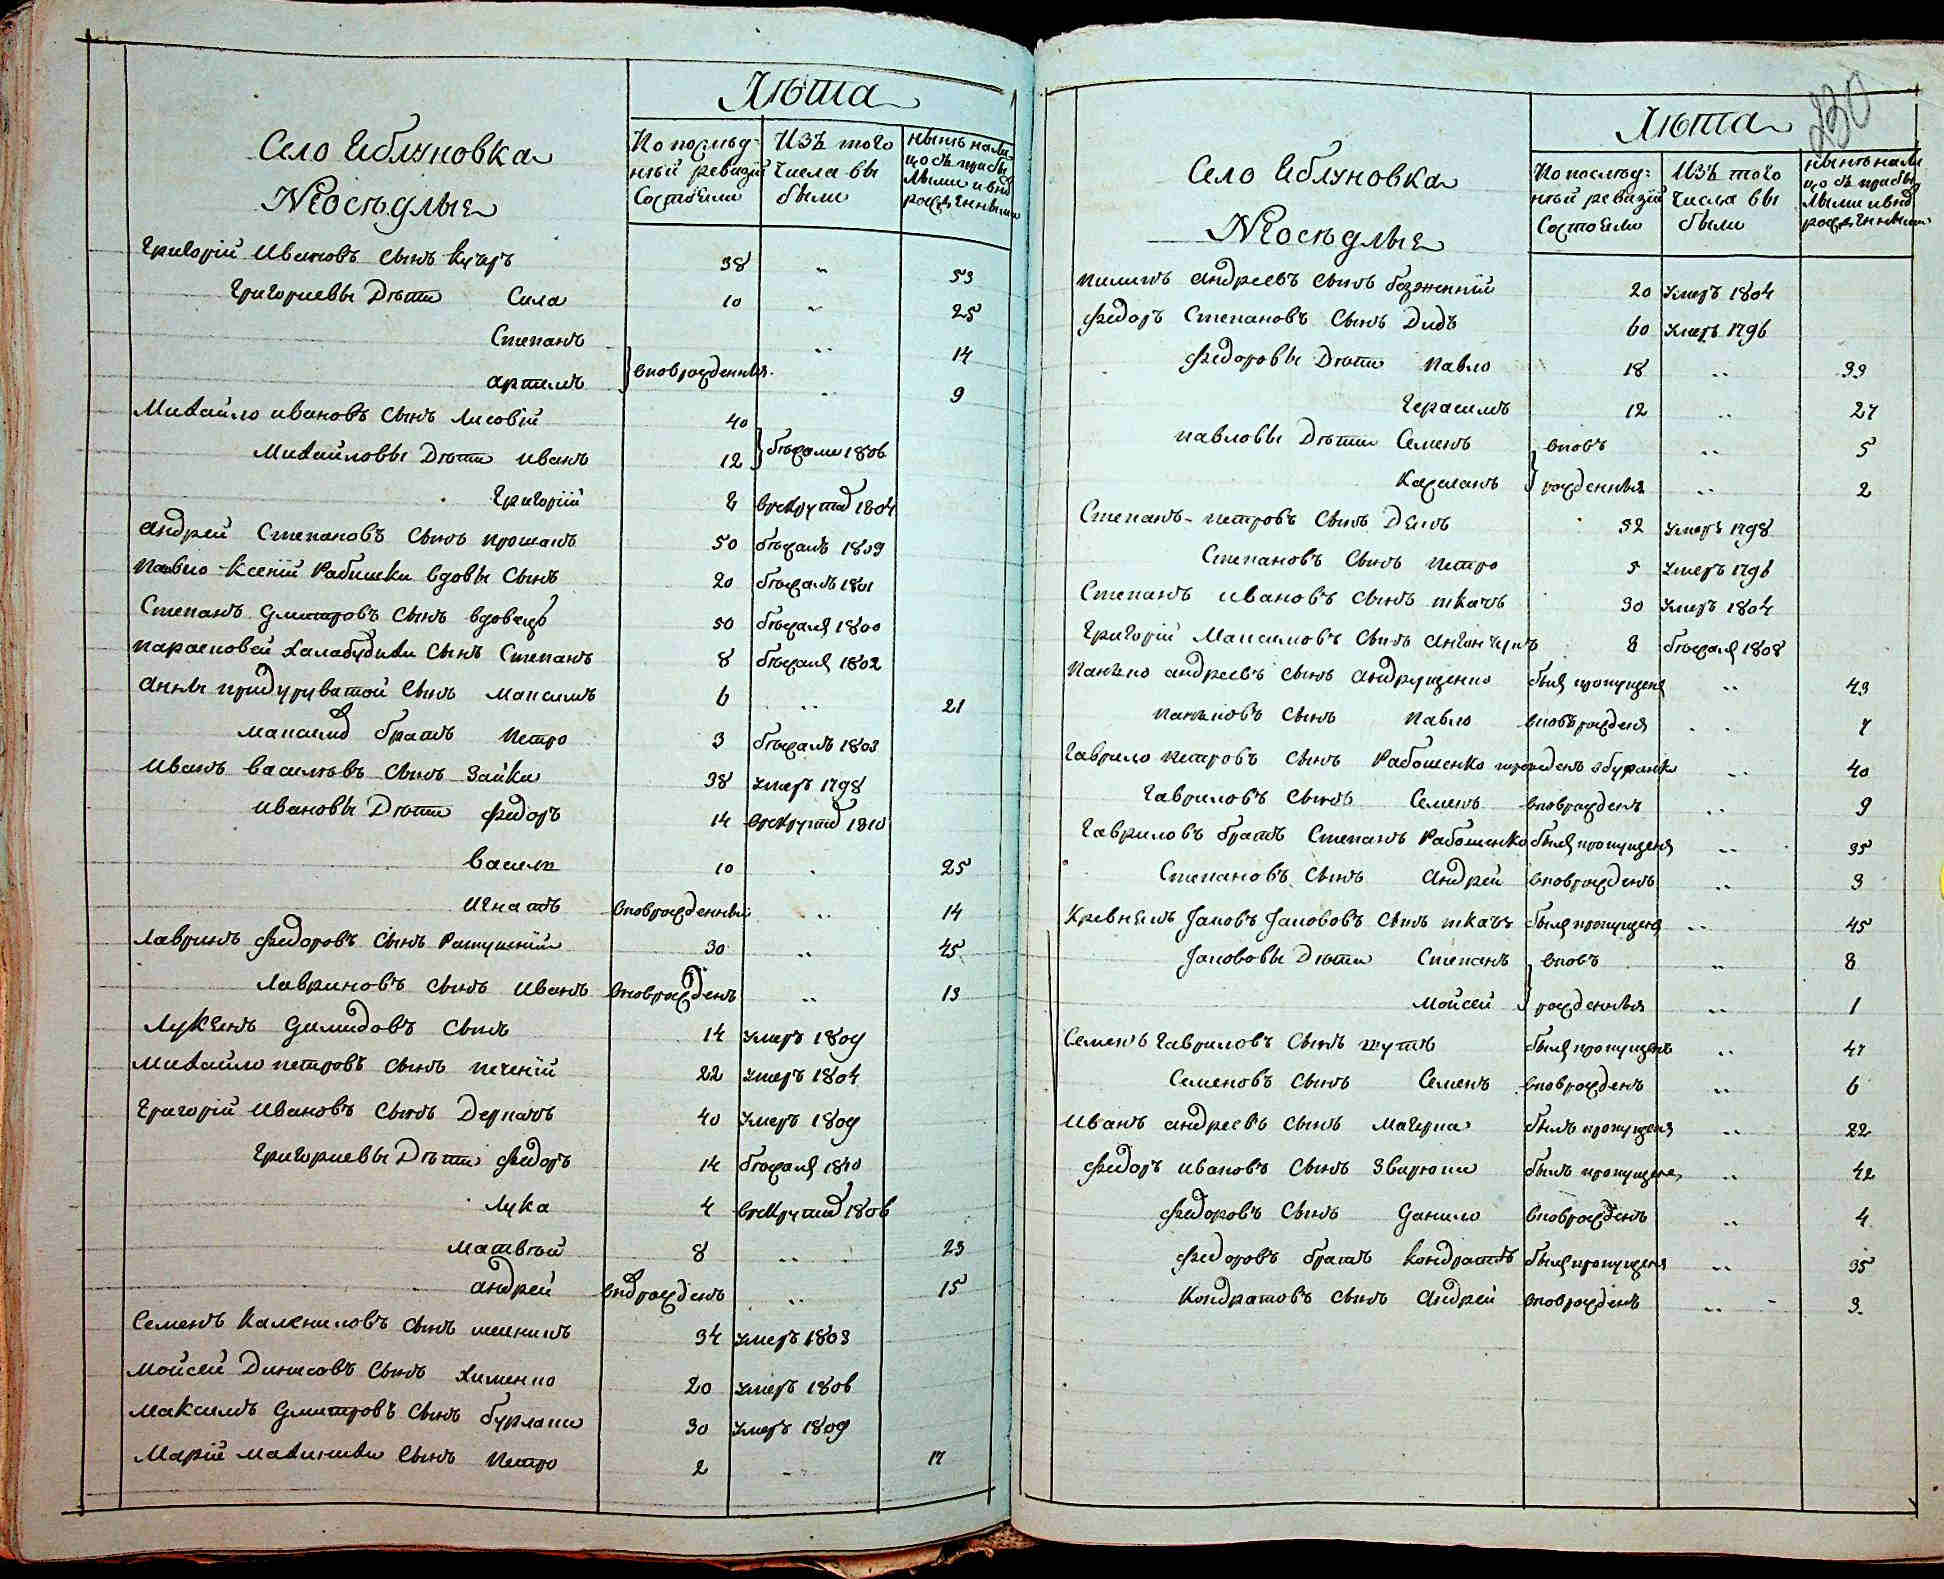 Лѣта
Село Яблуновка
Неосѣдлые
По послѣд-
нѣй ревизіи
Состояли
Изъ того
числа вы
были
Нынѣ нали
цо съ прибы
лыми и внѡ
рожденными
Григорій Ивановъ сынъ Кучеръ 38 „ 53
Григориевы Дѣти Сила 10 „ 25
Степанъ „ 14
вновьрожденныя
Артемъ „ 9
Михайло Ивановъ сынъ Лисовій 40
бѣжали 1806
Михайловы Дѣти Иванъ 12
Григорій 8 врекруты 1804
Андрей Степановъ сынъ 50 бѣжалъ 1809
Павло Ксеніи Рабишки вдовы сынъ 20 бѣжалъ 1801
Степанъ Дмитровъ сынъ вдовецъ 50 бѣжалъ 1800
Парасковеи Халабудихи сынъ Степанъ 8 бѣжалъ 1802
Анны Придуруватой сынъ Максимъ 6 „ 21
Максима братъ Петро 3 бѣжалъ 1803
Иванъ Васильевъ сынъ Зайка 38 умеръ 1798
Ивановы Дѣти Федоръ 14 врекруты 1810
Василь 10 „ 25
Игнатъ вноврожденный „ 14
Лавринъ Федоровъ сынъ Ратушній 30 „ 45
Лавриновъ сынъ Иванъ вноврожденъ „ 13
Лукянъ Демидовъ сынъ 14 умеръ 1809
Михайло Петровъ сынъ Печеній 22 умеръ 1804
Григорій Ивановъ сынъ Деркачъ 40 умеръ 1809
Григориевы Дѣти Федоръ 14 бѣжалъ 1810
Лука 4 врекруты 1806
Матвѣй 8 „ 23
Андрей внѡрожденъ „ 15
Семенъ сынъ 34 умеръ 1803
Мойсей Денисовъ сынъ Хименко 20 умеръ 1806
Максимъ Дмитровъ сынъ Бурлака 30 умеръ 1809
Марій сынъ Петро 2 „ 17
230
Лѣта
Село Яблуновка
Неосѣдлые
По послѣд-
нѣй ревизіи
Состояли
Изъ того
числа вы
были
Нынѣ нали
цо съ прибы
лыми и внѡ
рожденными
Пилипъ Андреевъ сынъ 20 умеръ 1804
Федоръ Степановъ сынъ Дидъ 60 умеръ 1796
Федоровы Дѣти Павло 18 „ 33
Герасимъ 12 „ 27
Павловы Дѣти Семенъ вновъ „ 5
Касіянъ рожденныя „ 2
Степанъ Петровъ сынъ 32 умеръ 1798
Степановъ сынъ Петро 5 умеръ 1796
Степанъ Ивановъ сынъ ткачъ 30 умеръ 1804
Григорій Максимовъ сынъ 8 бѣжалъ 1808
Панько Андреевъ сынъ Андрущенко былъ пропущенъ „ 43
Паньковъ сынъ Павло вновьрожденъ „ 7
Гаврило Петровъ сынъ Рабошенко „ 40
Гавриловъ сынъ Семенъ вноврожденъ „ 9
Гавриловъ братъ Степанъ Рабошенко былъ пропущенъ „ 35
Степановъ сынъ Андрей вноврожденъ „ 3
Яковъ Якововъ сынъ ткачъ былъ пропущенъ „ 45
Яковovы Дѣти Степанъ вновъ „ 8
Мойсей рожденныя „ 1
Семенъ Гавриловъ сынъ Шутъ былъ пропущенъ „ 47
Семеновъ сынъ Семенъ вноврожденъ „ 6
Иванъ Андреевъ сынъ Магерка былъ пропущенъ „ 22
Федоръ Ивановъ сынъ былъ пропущенъ „ 42
Федоровъ сынъ Данило вноврожденъ „ 4
Федоровъ братъ Кондратъ былъ пропущенъ „ 35
Кондратовъ сынъ Андрей вноврожденъ „ 3